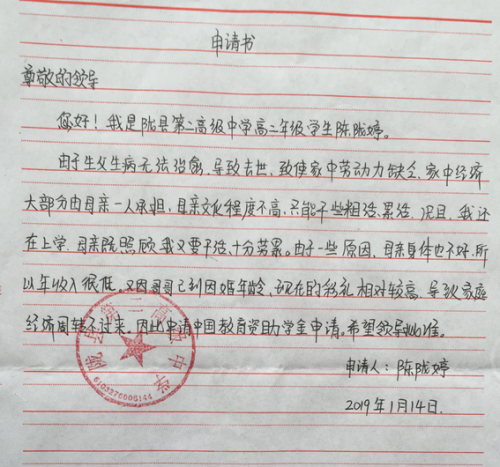 申请书
尊敬的领导
您好！我是陇县第二高级中学高二年级学生陈陇婷。
由于生父生病无法治愈，导致去世，致使家中劳动力缺乏，家中经济
大部分由母亲一人承担，母亲文化程度不高，只能干些粗活、累活，况且，我还
在上学，母亲既照顾我又要干活，十分劳累。由于一些原因，母亲身体也不好，所
以年收入很低，又因哥哥已到因婚年龄，现在的彩礼相对较高，导致家庭
经济周转不过来，因此申请中国教育资助学金申请。希望领导批准。
申请人：陈陇婷
2019年1月14日.
陇县第二高级中学
6103276006144